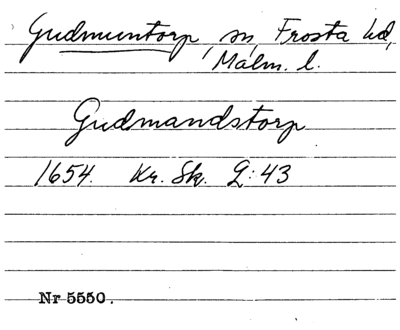 Gudmuntorp, sn, Frosta hd,
Malm. l.
Gudmandstorp
1654. Kr. Sk. Q: 43
Nr 5550.